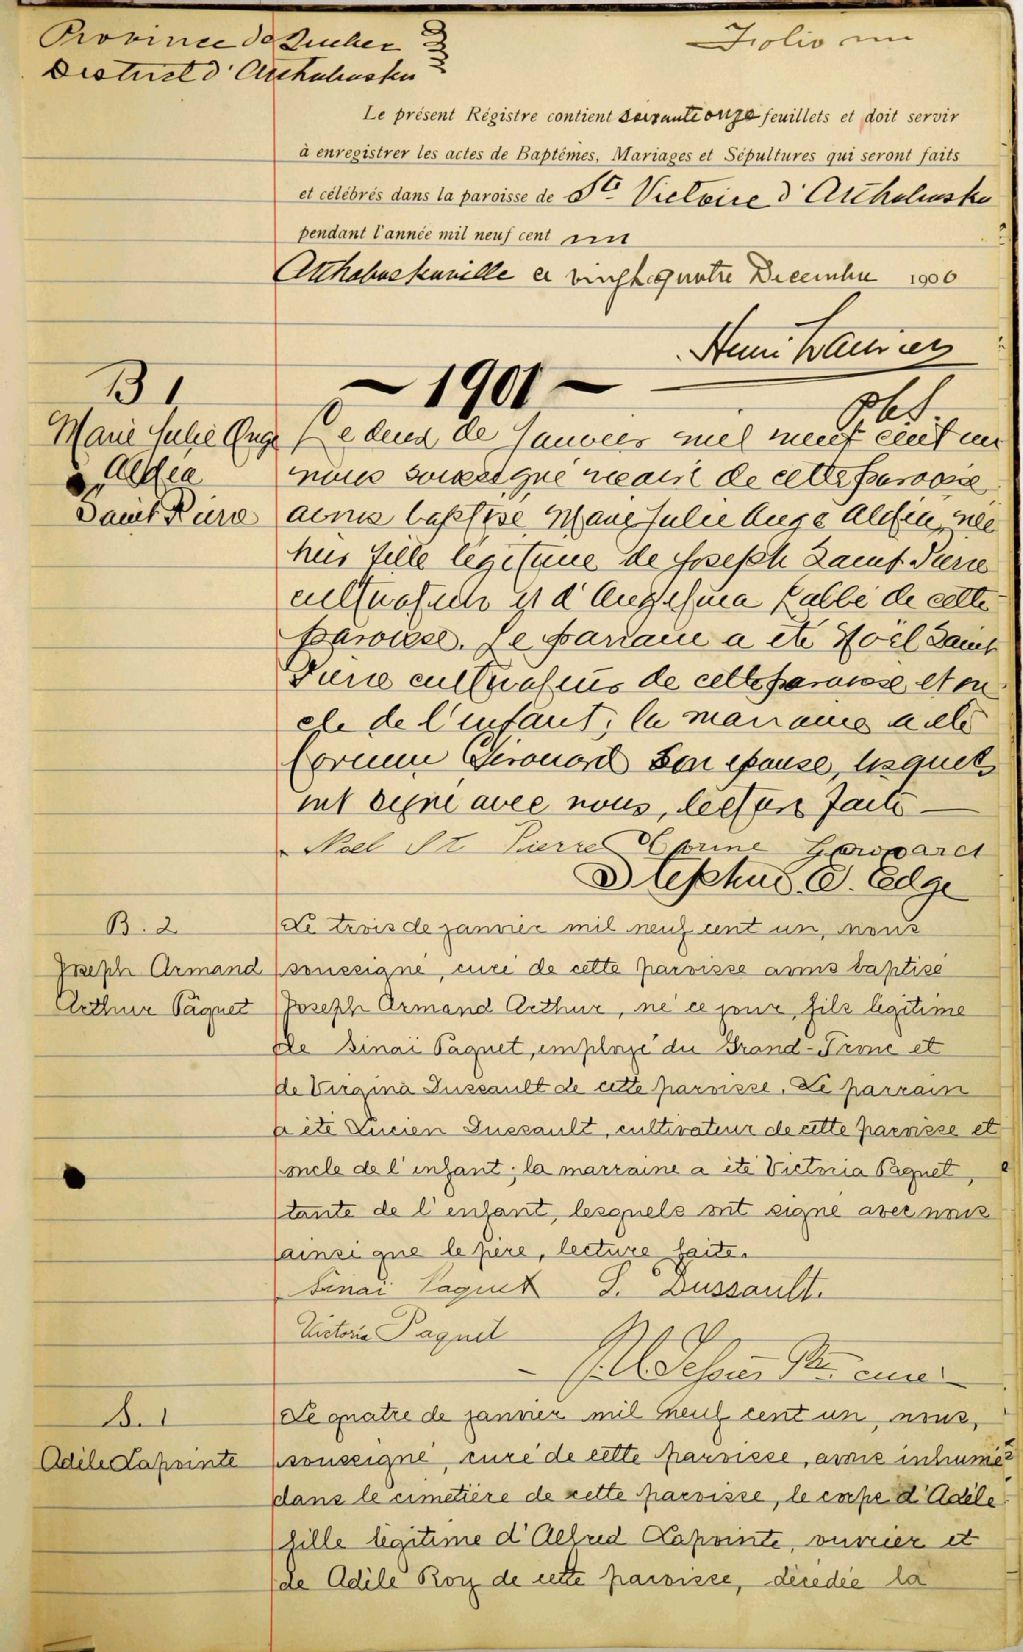 Province de Quebec
District d'Arthabaska
Folio un
Le présent Régistre contient soixante onze feuillets et doit servir
à enregistrer les actes de Baptêmes, Mariages et Sépultures qui seront faits
et célébrés dans la paroisse de Ste Victoire d'Arthabaska
pendant l'année mil neuf cent un
Arthabaskaville ce vingt quatre Decembre 1900
Henri Laurier
PCS.
~ 1901 ~
B 1
Marie Julie Ange
Aldéa
Saint Pierre
Le deux de Janvier mil neuf cent un
nous soussigné vicaire de cette paroisse
avons baptisé Marie Julie Ange Aldéa, née
hier fille légitime de Joseph Saint Pierre
cultivateur et d'Angelina Labbé de cette
paroisse. Le parrain a été Noël Saint
Pierre cultivateur de cette paroisse et on
cle de l'enfant; la marraine a été
Corinne Girouard son épouse, lesquels
ont signé avec nous, lecture faite —
Noel St Pierre Corine Girouard
Stephen. E. Edge
B. 2
Joseph Armand
Arthur Pâquet
Le trois de janvier mil neuf cent un, nous
soussigné, curé de cette paroisse avons baptisé
Joseph Armand Arthur, né ce jour, fils légitime
de Sinaï Paquet, employé du Grand-Tronc et
de Virgina Dussault de cette paroisse. Le parrain
a été Lucien Dussault, cultivateur de cette paroisse et
oncle de l'enfant; la marraine a été Victoria Paquet,
tante de l'enfant, lesquels ont signé avec nous
ainsi que le père, lecture faite.
Sinaï Paquet L. Dussault.
Victoria Paquet
Tessier Ptre curé
S. 1
Adèle Lapointe
Le quatre de janvier mil neuf cent un, nous,
soussigné, curé de cette paroisse, avons inhumé
dans le cimetière de cette paroisse, le corps d'Adèle
fille légitime d'Alfred Lapointe, ouvrier et
de Adèle Roy de cette paroisse, décédée la